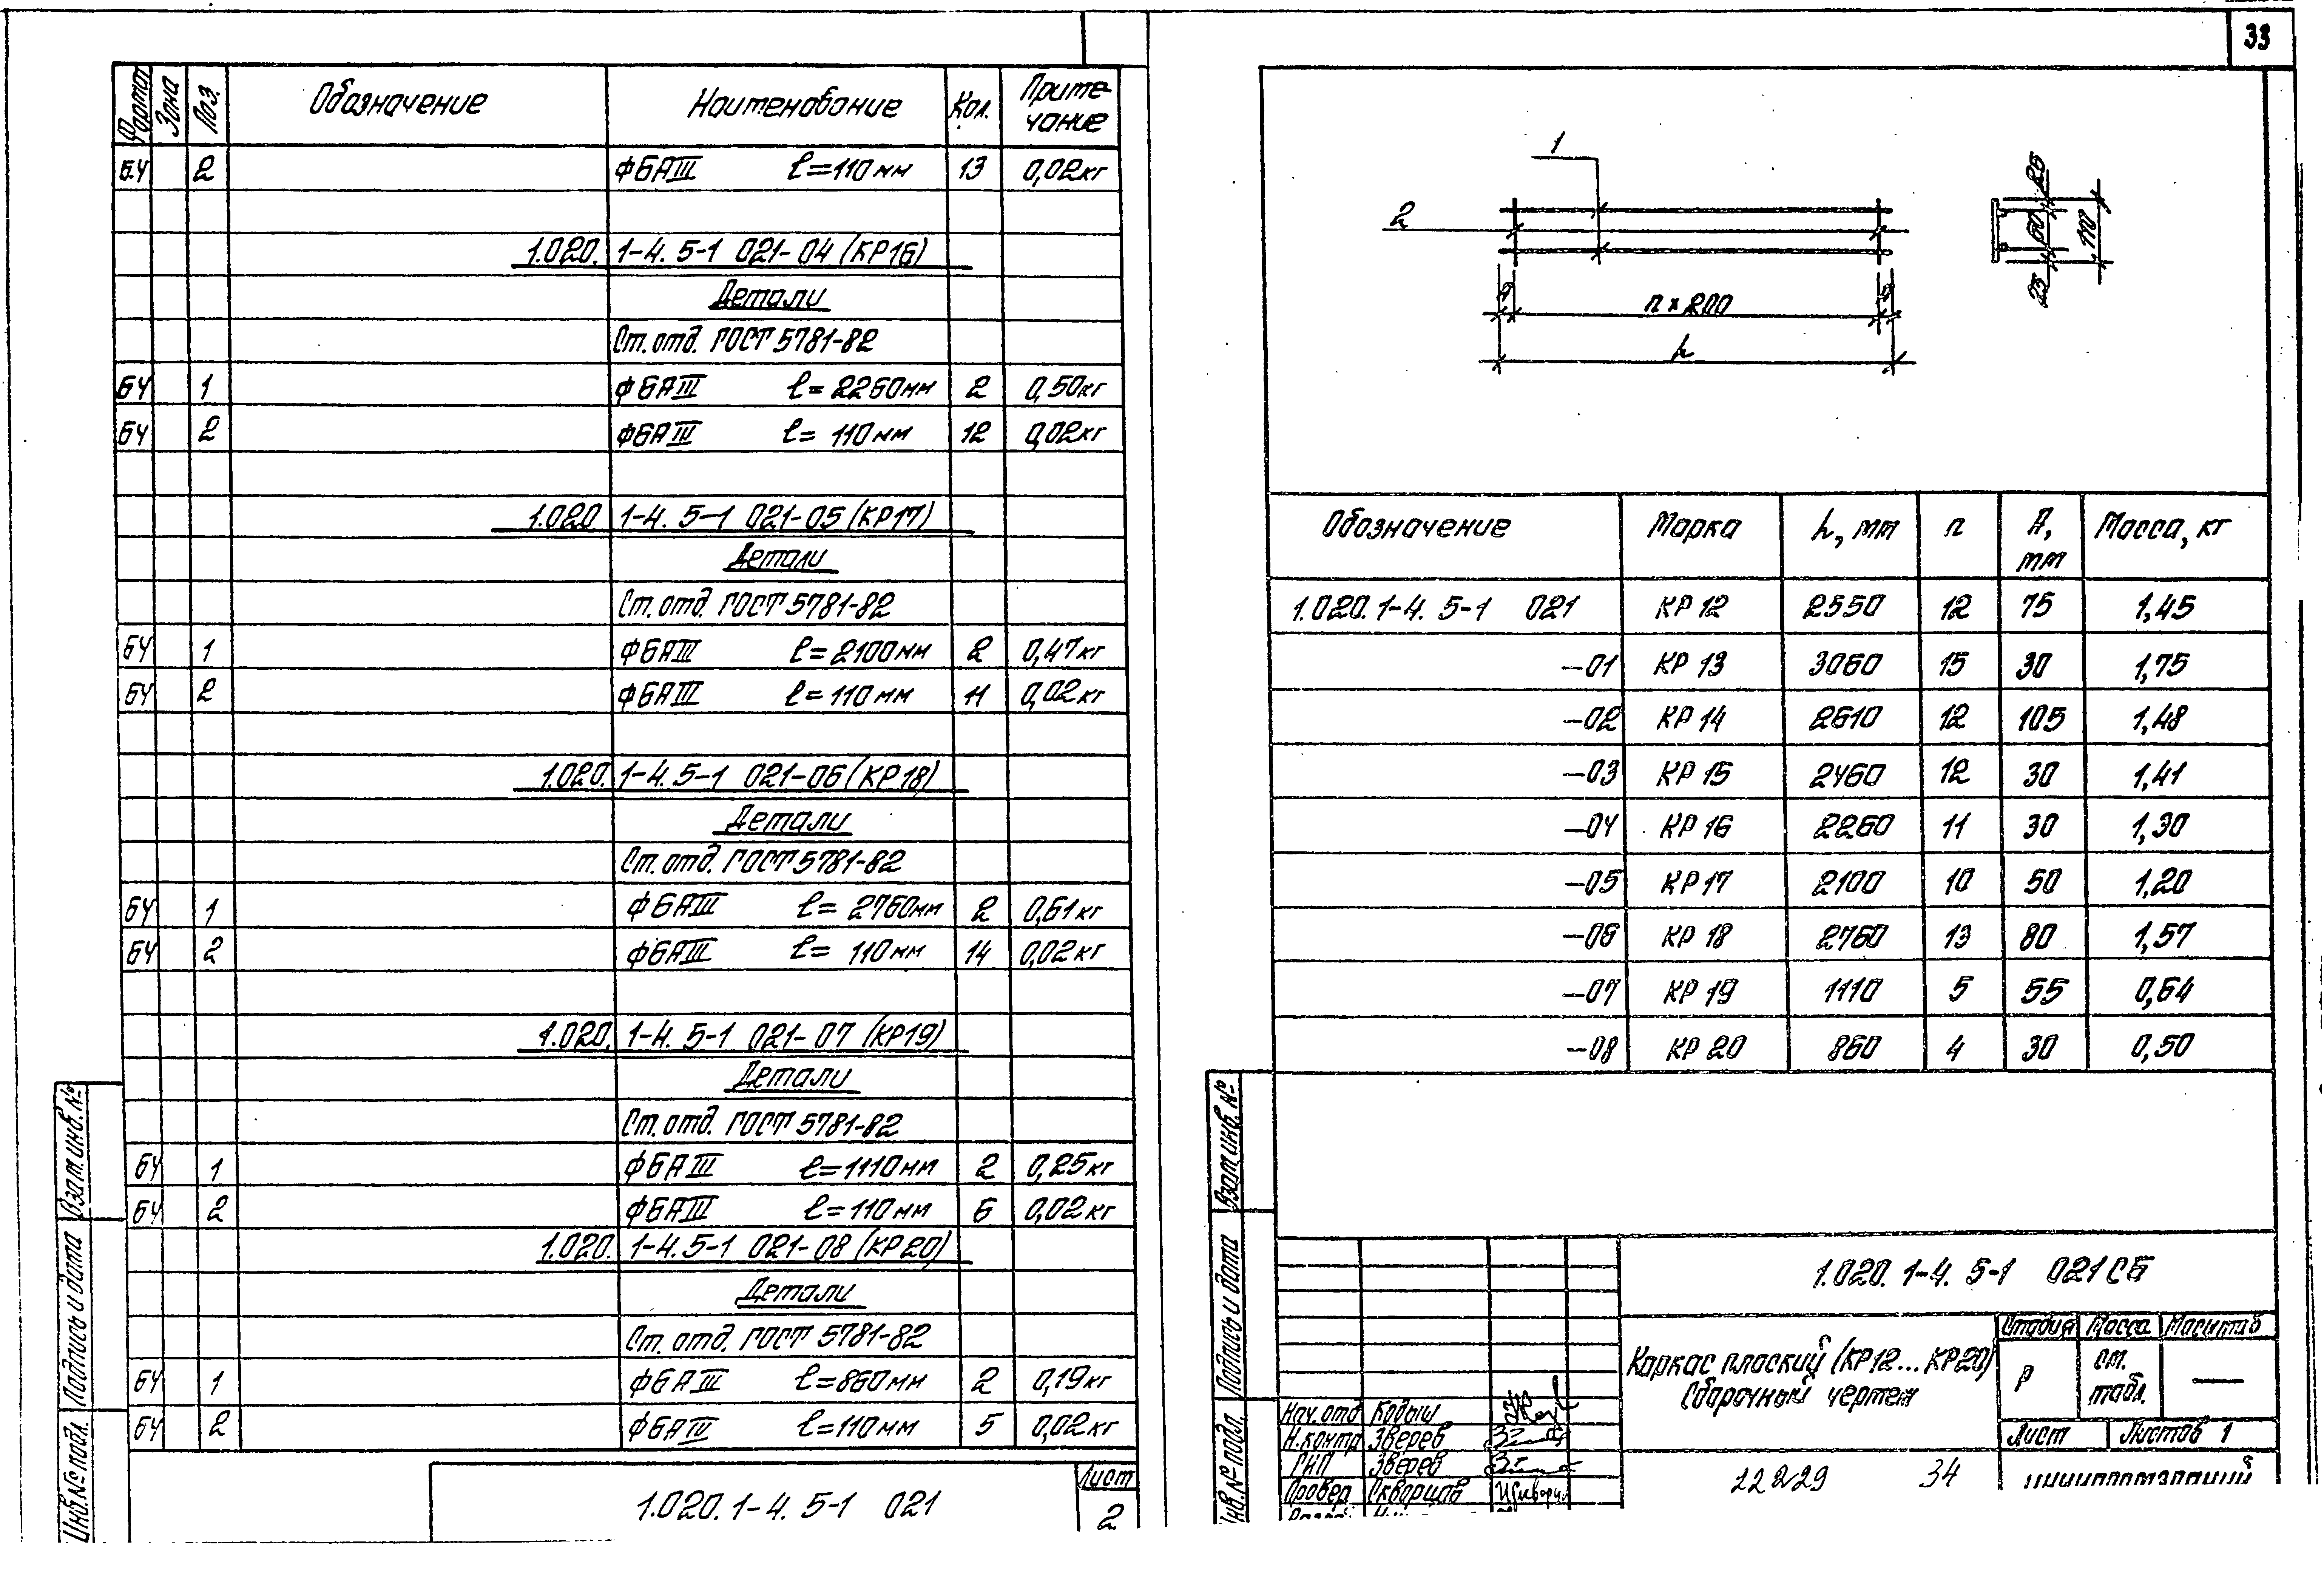 Формат Зона Поз. Обозначение Наименование Кол. Приме-
чание
БЧ 2 Ф6АIII ℓ=110мм 13 0,02кг
1.020.1-4.5-1 021-04 (КР16)
Детали
Ст.отд. ГОСТ 5781-82
БЧ 1 Ф6АIII ℓ=2260мм 2 0,50кг
БЧ 2 Ф6АIII ℓ=110мм 12 0,02кг
1.020.1-4.5-1 021-05 (КР17)
Детали
Ст.отд. ГОСТ 5781-82
БЧ 1 Ф6АIII ℓ=2100мм 2 0,47кг
БЧ 2 Ф6АIII ℓ=110мм 11 0,02кг
1.020.1-4.5-1 021-06 (КР18)
Детали
Ст.отд. ГОСТ 5781-82
БЧ 1 Ф6АIII ℓ=2760мм 2 0,61кг
БЧ 2 Ф6АIII ℓ=110мм 14 0,02кг
1.020.1-4.5-1 021-07 (КР19)
Детали
Ст.отд. ГОСТ 5781-82
БЧ 1 Ф6АIII ℓ=1110мм 2 0,25кг
БЧ 2 Ф6АIII ℓ=110мм 6 0,02кг
1.020.1-4.5-1 021-08 (КР20)
Детали
Ст.отд. ГОСТ 5781-82
БЧ 1 Ф6АIII ℓ=860мм 2 0,19кг
БЧ 2 Ф6АIII ℓ=110мм 5 0,02кг
Взам.инв.№
Подпись и дата
Инв.№ подл.
1.020.1-4.5-1 021
Лист
2
33
1
2
n×200
h
25
60
25
110
Обозначение Марка h, мм n А, мм Масса, кг
1.020.1-4.5-1 021 КР12 2550 12 75 1,45
-01 КР13 3060 15 30 1,75
-02 КР14 2610 12 105 1,48
-03 КР15 2460 12 30 1,41
-04 КР16 2260 11 30 1,30
-05 КР17 2100 10 50 1,20
-06 КР18 2760 13 80 1,57
-07 КР19 1110 5 55 0,64
-08 КР20 860 4 30 0,50
Взам.инв.№
Подпись и дата
Инв.№ подл.
1.020.1-4.5-1 021СБ
Каркас плоский (КР12...КР20)
Сборочный чертеж
Стадия Масса Масштаб
Р см. табл. —
Лист Листов 1
Нач.отд Кодыш
Н.контр Зверев
ГИП Зверев
Провер
22229 34